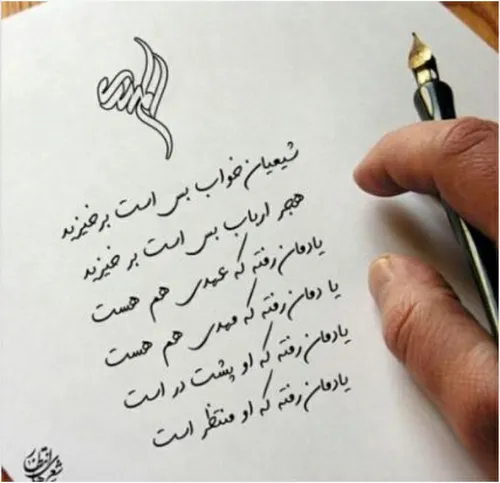 المهدی
شیعیان خواب بس است برخیزید
هجر ارباب بس است برخیزید
یادمان رفته که عهدی هم هست
یادمان رفته که مهدی هم هست
یادمان رفته که او پشت در است
یادمان رفته که او منتظر است
شعر انتظار